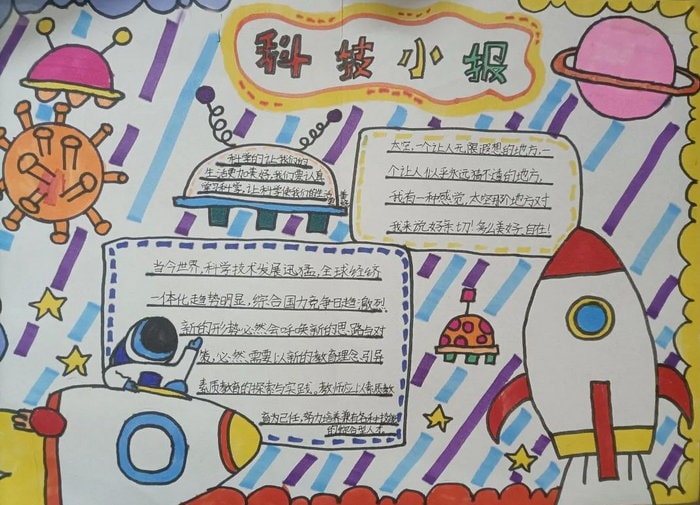 科技小报
科学的让我们的
生活更加美好,我们要认真
学习科学,让科学使我们的生活
太空,一个让人无限遐想的地方,一
个让人们似乎永远猜不透的地方,
我有一种感觉,太空那个地方对
我来说,好亲切!多么美好,自在!
当今世界,科学技术发展迅猛,全球经济
一体化趋势明显,综合国力竞争日趋激烈.
新的形势必然会呼唤新的思路与对
策,必然需要以新的教育理念,引导
素质教育的探索与实践。教师应以素质教
育为己任,努力培养
的复合型人才.